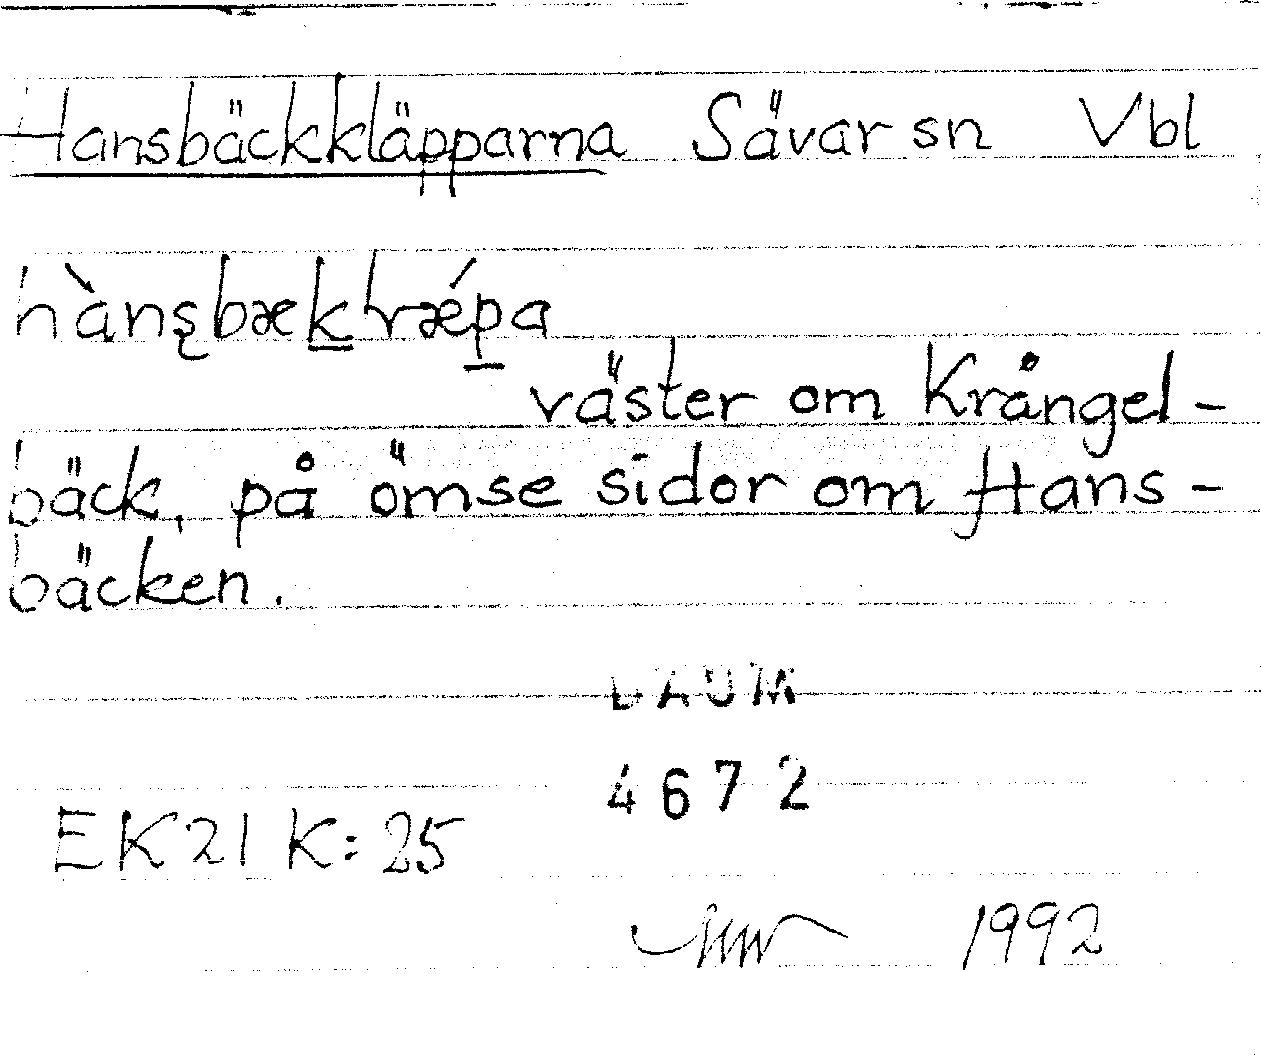 Hansbäckkläpparna Sävar sn Vbl
väster om Krångel-
bäck, på ömse sidor om Hans-
bäcken.
DAUM
4672
EK 21 K: 25
1992